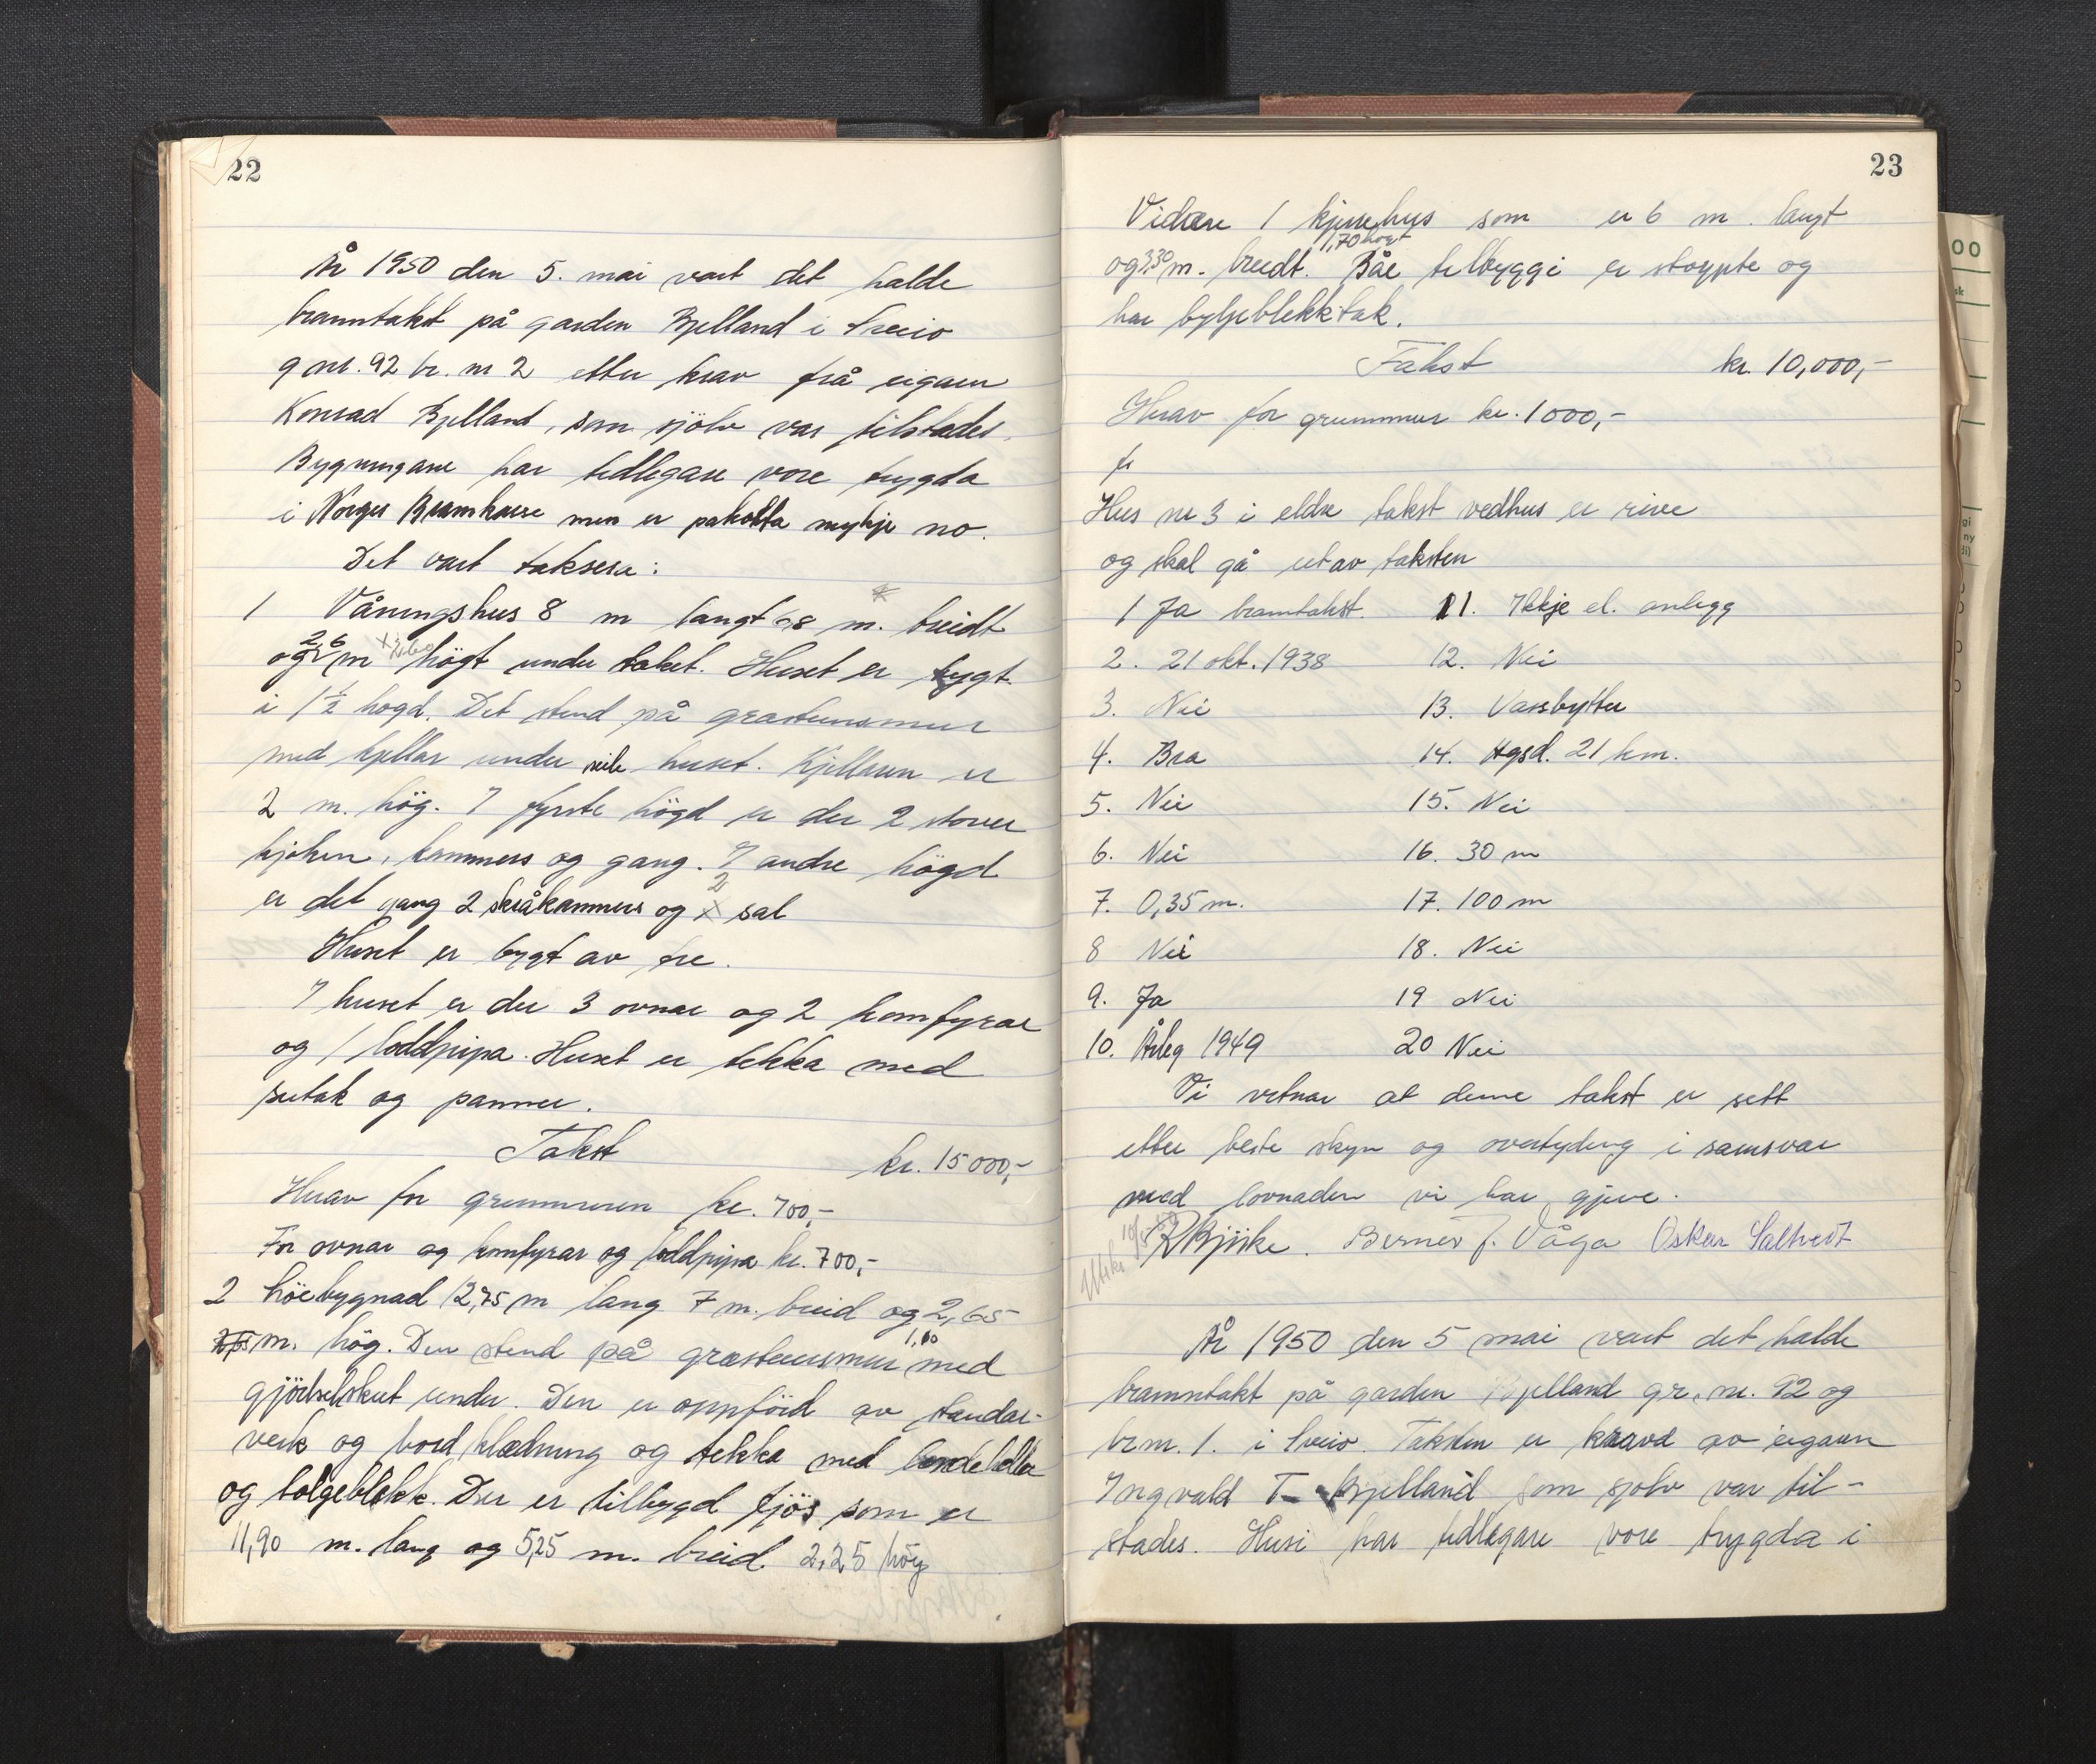 22
År 1950 den 5. mai vart det halde
branntakst på garden Bjelland i Sveio
g nr. 92 br. nr 2 etter krav frå eigaren
Konrad Bjelland, som sjölv var tilstades.
Bygningane har tidlegare vore trygda
i Norges Brannkasse men er påkosta mykje no.
Det vart taksera:
1 Våningshus 8 m langt 8 m. breidt
og 2,6 m högt under taket. Huset er bygt
i 1½ högd. Det stend på gråsteinsmur
med kjellar under heile huset. Kjellaren er
2 m. hög. I fyrste högd er der 2 stover
kjöken, kammers og gang. I andre högd
er det gang 2 skråkammers og 2 sal
Huset er bygt av tre.
I huset er der 3 ovnar og 2 komfyrar
og 1 loddpipa. Huset er tekka med
sutak og panner.
Takst kr. 15000,-
Herav for grunnmuren kr. 700,-
For ovnar og komfyrar og loddpipa kr. 700,-
2 höebygnad 12,75 m lang 7 m. breid og 2,65
m. hög. Den stend på gråsteinsmur 1,60 med
gjödselskut under. Den er oppförd av standar-
verk og bord klædning og tekka med lendeheller
og bølgeblekk. Der er tilbygd fjös som er
11,90 m. lang og 5,25 m. breid. 2,25 høg
23
Vidare 1 kjyrrehus som er 6 m. langt
1,70 høgt
og 3,30 m. breidt. Båe tilbyggi er støypte og
har bylgeblekktak.
Takst kr. 10,000,-
Herav for grunnmur kr. 1000,-
fr
Hus nr 3 i eldre takst vedhus er rive
og skal gå ut av taksten
1 Ja branntakst. 11. Ikkje el. anlegg
2. 21 okt. 1938 12. Nei
3. Nei 13. Vassbytter
4. Bra 14. Hgsd. 21 km.
5. Nei 15. Nei
6. Nei 16. 30 m
7. 0,35 m. 17. 100 m
8 Nei 18. Nei
9. Ja 19 Nei
10. Årleg 1949 20 Nei
Vi vitnar at denne takst er sett
etter beste skyn og overtyding i samsvar
med lovnaden vi har gjeve.
Bjørke. Berner J. Våga Oskar Saltvedt
År 1950 den 5 mai vart det halde
branntakst på garden Bjelland gr. nr. 92 og
br nr. 1. i Sveio. Taksten er kravd av eigaren
Ingvald T. Bjelland som sjølv var til-
stades. Husi har tidlegare vore trygda i